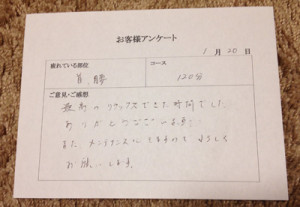 お客様アンケート
1月20日
疲れている部位
コース
肩、腰
120分
ご意見・ご感想
最高のリラックスできた時間でした
ありがとうございました
また、メンテナンスに
よろしく
お願いします。